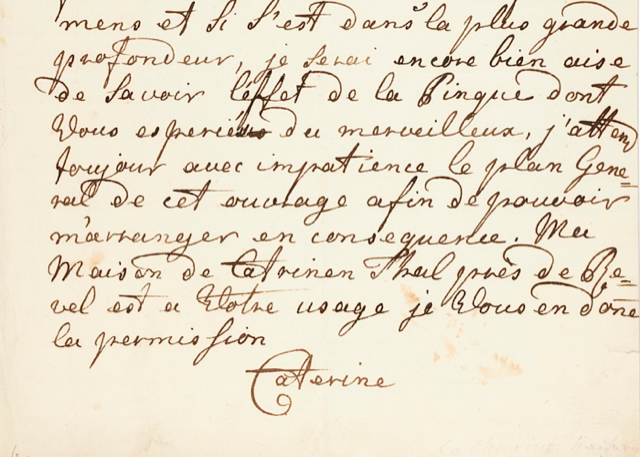 mens et si s'est dans la plus grande
profondeur, je serai encore bien aise
de savoir l'effet de la Pingue dont
Vous esperiés du merveilleux, j'attens
toujour avec impatience le plan Gene=
ral de cet ouvrage afin de pouvoir
m'arranger en consequence. Ma
Maison de Catrinen Thal près de Re=
vel est a Votre usage je Vous en donne
la permission
Caterine